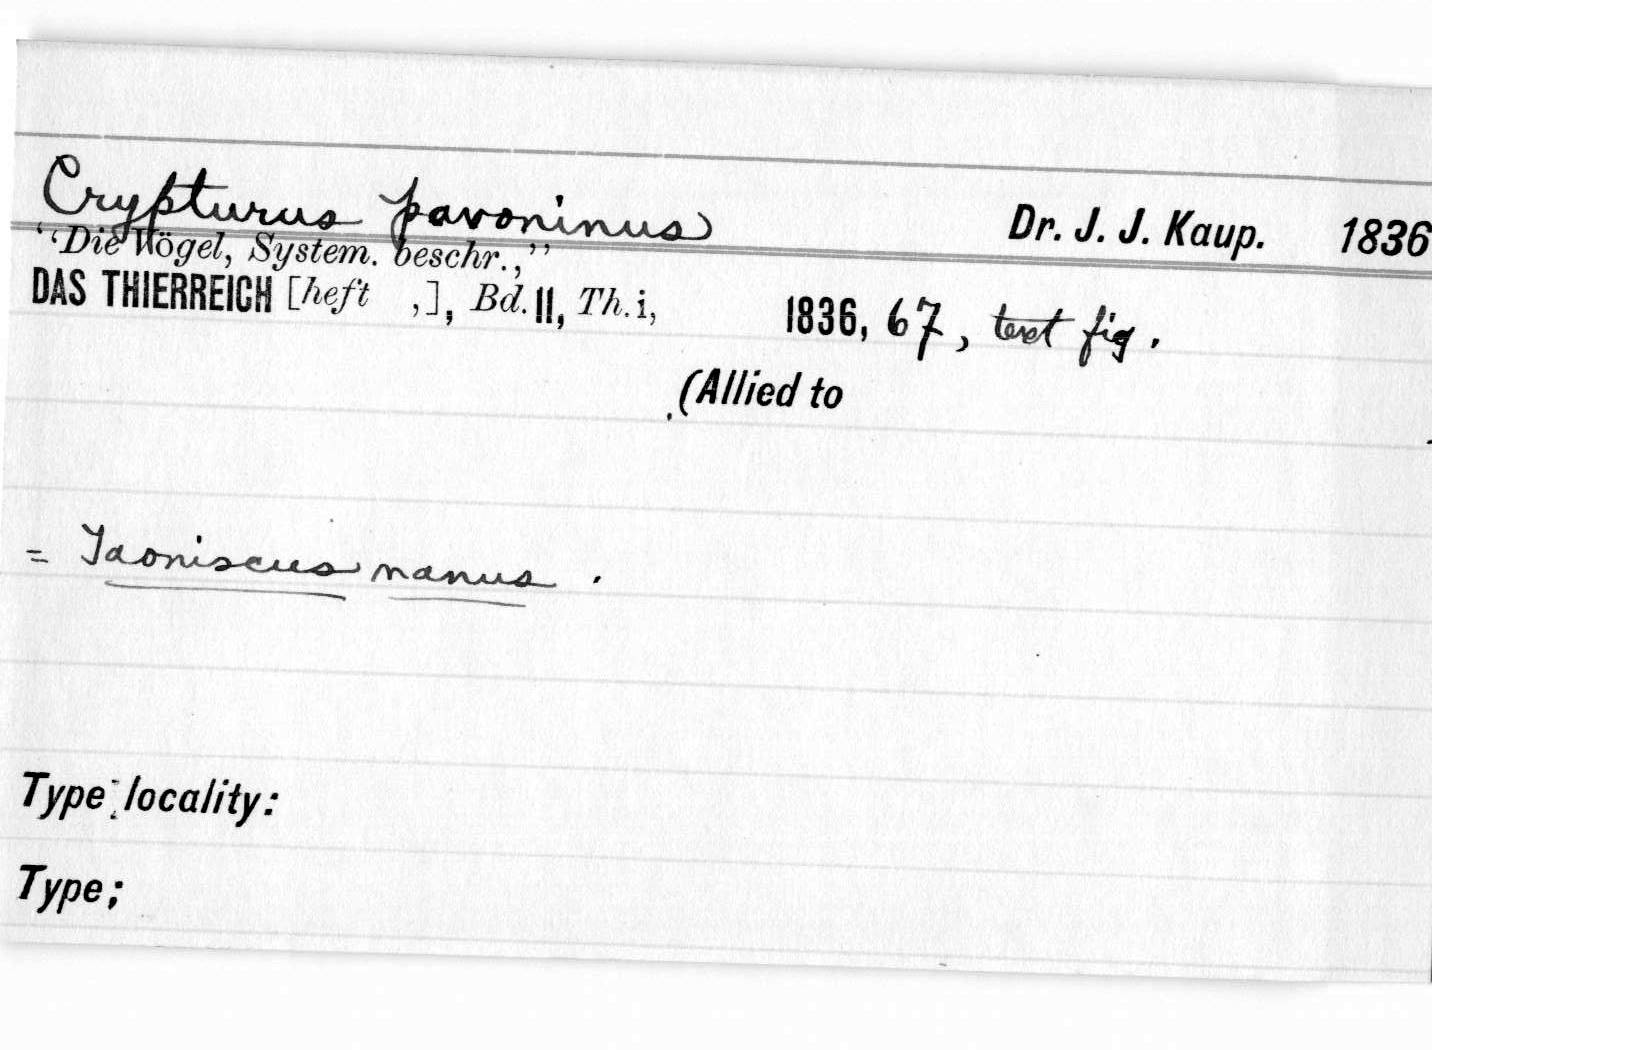 Crypturus pavoninus Dr. J. J. Kaup. 1836
"Die Vögel, System. beschr.,"
DAS THIERREICH [heft ,], Bd. II, Th. i, 1836, 67, text fig.
(Allied to
= Taoniscus nanus.
Type locality:
Type;